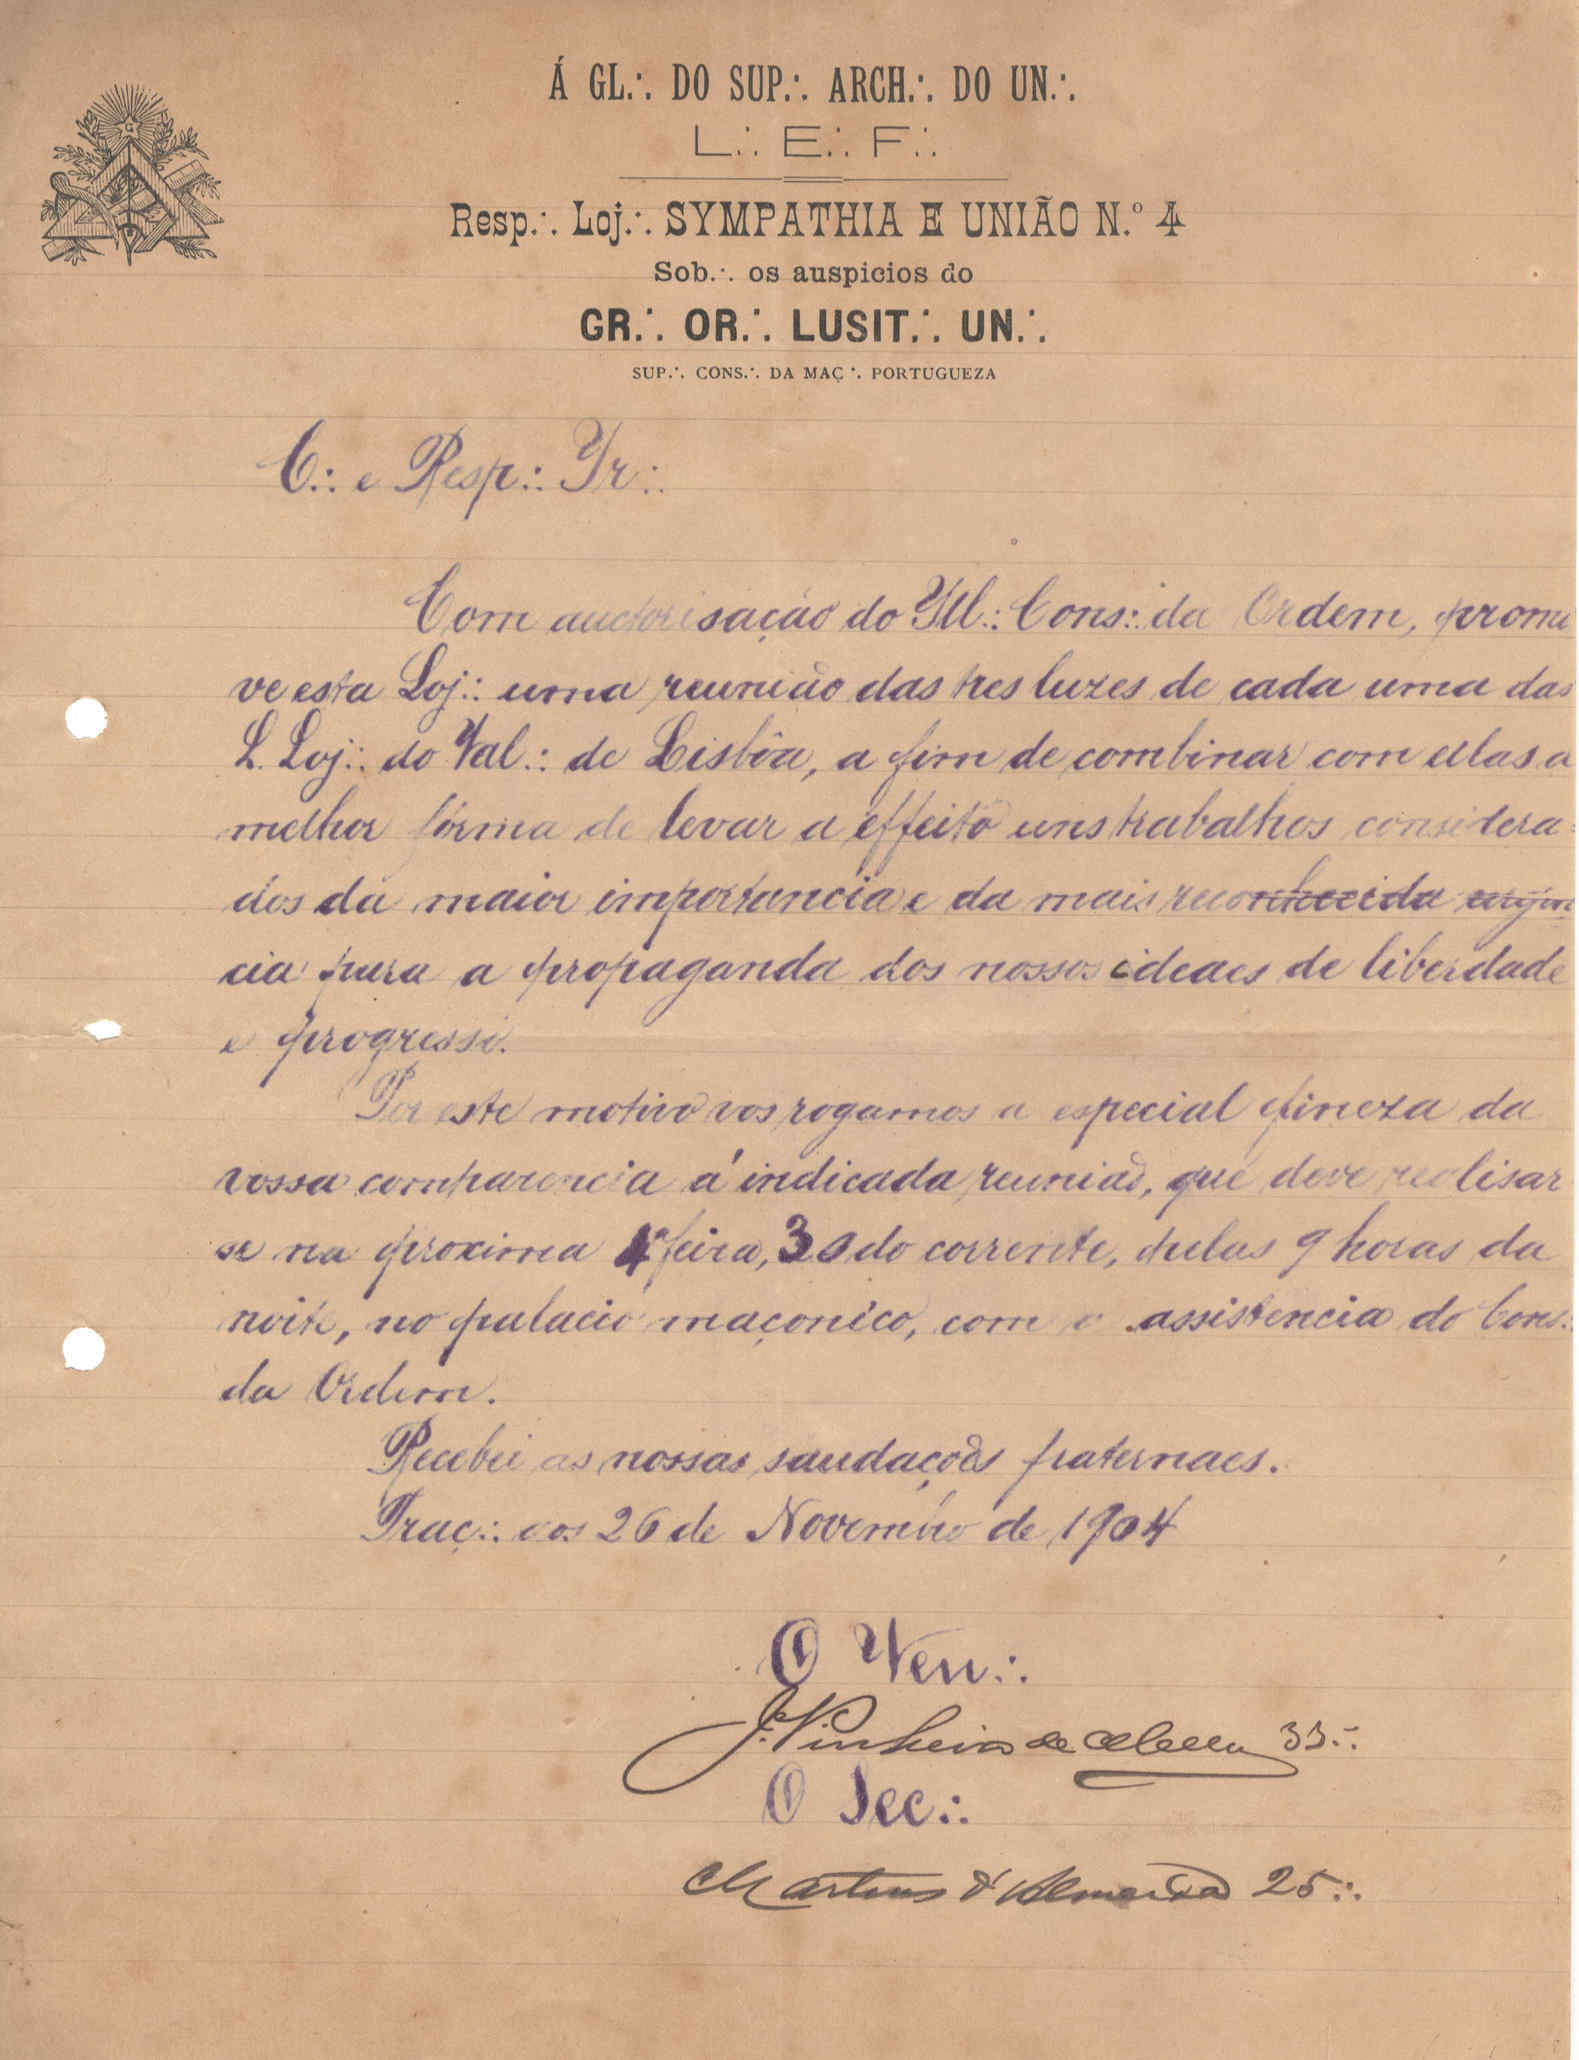 Á GL∴ DO SUP∴ ARCH∴ DO UN∴
L∴ E∴ F∴
Resp∴ Loj∴ SYMPATHIA E UNIÃO N.º 4
Sob∴ os auspicios do
GR∴ OR∴ LUSIT∴ UN∴
SUP∴ CONS∴ DA MAÇ∴ PORTUGUEZA
G
C∴ e Resp∴ Ir∴
Com auctorisação do Ill∴ Cons∴ da Ordem, promo
ve esta Loj∴ uma reunião das tres luzes de cada uma das
L. Loj∴ do Val∴ de Lisbôa, a fim de combinar com ellas a
melhor fórma de levar a effeito uns trabalhos considera
dos da maior importancia e da mais reconhecida urgen
cia para a propaganda dos nossos ideaes de liberdade
e progresso.
Por este motivo vos rogamos a especial fineza da
vossa comparencia á indicada reunião, que deve realisar
se na proxima 4ª feira, 30 do corrente, pelas 9 horas da
noite, no palacio maçonico, com a assistencia do Cons∴
da Ordem.
Recebei as nossas saudações fraternaes.
Traç∴ aos 26 de Novembro de 1904
O Ven∴
J. Pinheiro de Mello 33∴
O Sec∴
Martins d'Almeida 25∴